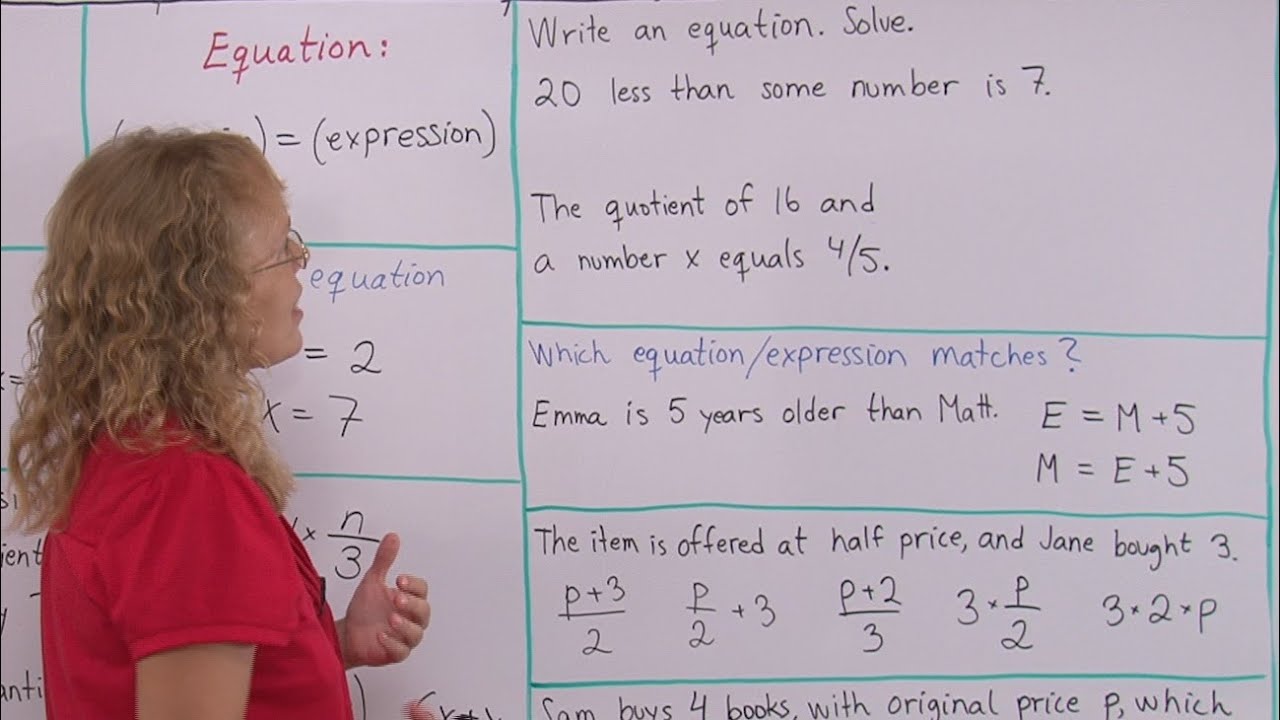 Equation:
= (expression)
equation
= 2
x = 7
× n/3
Write an equation. Solve.
20 less than some number is 7.
The quotient of 16 and
a number x equals 4/5.
Which equation/expression matches?
Emma is 5 years older than Matt. E = M + 5
M = E + 5
The item is offered at half price, and Jane bought 3.
p+3/2 p/2 + 3 p+2/3 3 × p/2 3 × 2 × p
Sam buys 4 books, with original price p, which